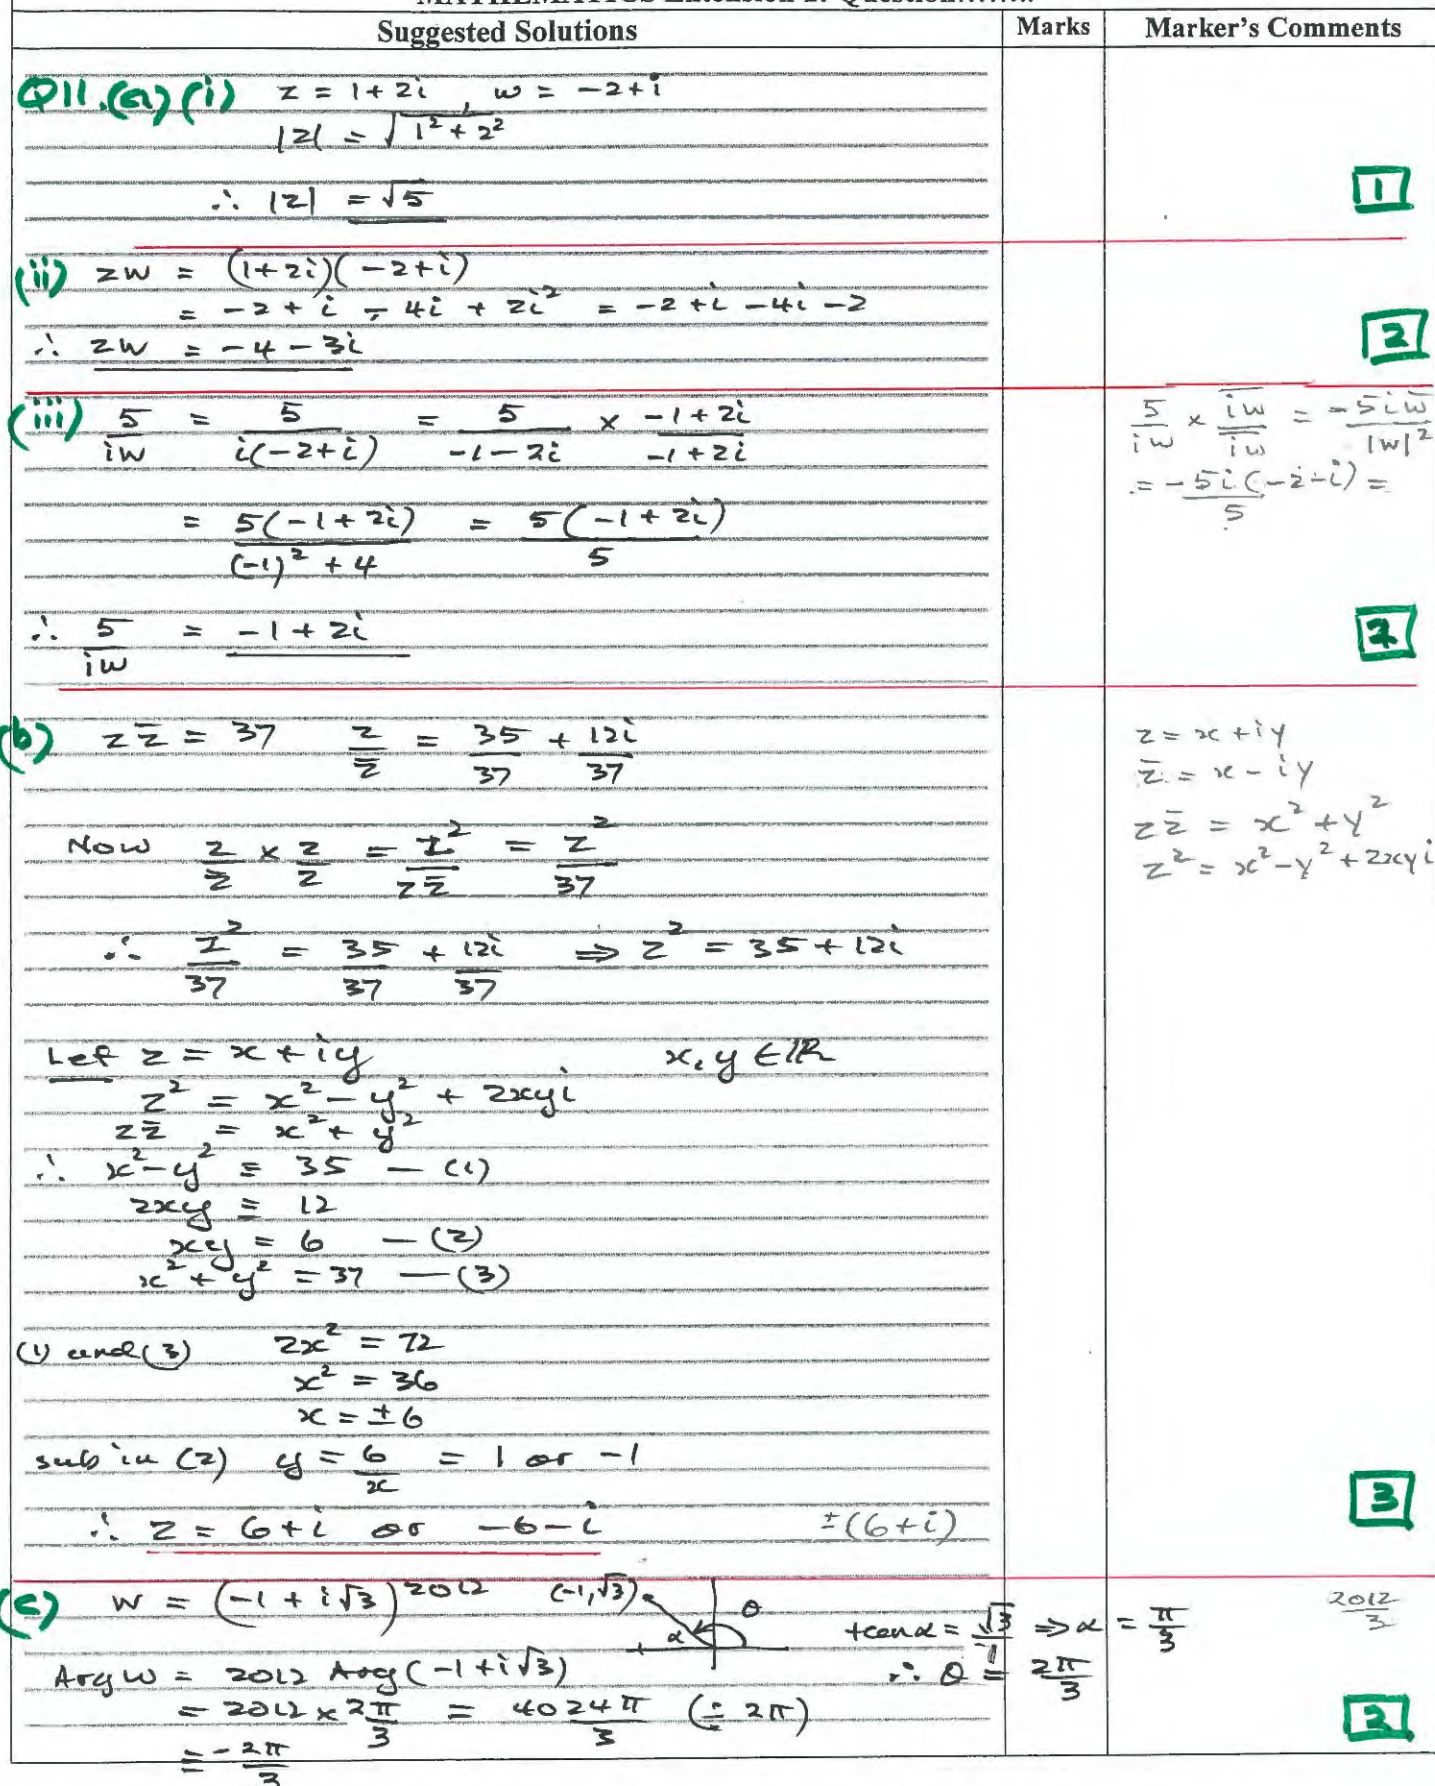 Suggested Solutions Marks Marker's Comments
Q11.(a)(i) z = 1+2i, w = -2+i
|z| = √(1² + 2²)
∴ |z| = √5
1
(ii) zw = (1+2i)(-2+i)
= -2 + i - 4i + 2i² = -2 + i - 4i - 2
∴ zw = -4 - 3i
2
(iii) 5/iw = 5/i(-2+i) = 5/(-1-2i) × (-1+2i)/(-1+2i)
= 5(-1+2i)/((-1)² + 4) = 5(-1+2i)/5
∴ 5/iw = -1+2i
5/iw × \overline{iw}/\overline{iw} = -5iw̄/|w|²
= -5i(-2-i)/5 =
2
(b) zz̄ = 37 z/z̄ = 35/37 + 12i/37
Now z/z̄ × z/z = z²/zz̄ = z²/37
∴ z²/37 = 35/37 + 12i/37 ⇒ z² = 35+12i
Let z = x+iy x, y ∈ ℝ
z² = x² - y² + 2xyi
zz̄ = x² + y²
∴ x² - y² = 35 — (1)
2xy = 12
xy = 6 — (2)
x² + y² = 37 — (3)
(1) and (3) 2x² = 72
x² = 36
x = ±6
sub in (2) y = 6/x = 1 or -1
∴ z = 6+i or -6-i ±(6+i)
z = x+iy
z̄ = x-iy
zz̄ = x² + y²
z² = x² - y² + 2xyi
3
(c) w = (-1+i√3)^2012 (-1,√3) θ α
tan α = √3/1 ⇒ α = π/3 2012/3
Arg w = 2012 Arg(-1+i√3) ∴ θ = 2π/3
= 2012 × 2π/3 = 4024π/3 (÷ 2π)
= -2π/3
2